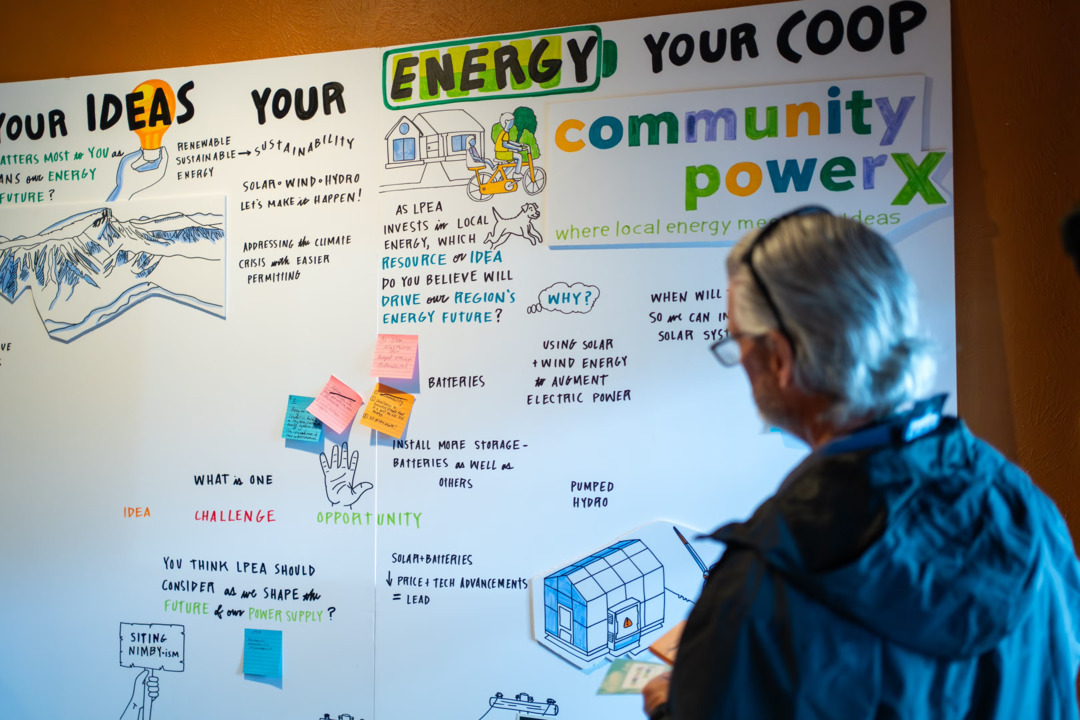 YOUR IDEAS
YOUR
ENERGY
YOUR COOP
MOST to YOU as
our ENERGY
FUTURE?
RENEWABLE
SUSTAINABLE → SUSTAINABILITY
ENERGY
SOLAR • WIND • HYDRO
LET'S MAKE it HAPPEN!
ADDRESSING the CLIMATE
CRISIS with EASIER
PERMITTING
AS LPEA
INVESTS in LOCAL
ENERGY, WHICH
RESOURCE or IDEA
DO YOU BELIEVE WILL
DRIVE our REGION'S
ENERGY FUTURE?
community
powerX
where local energy ideas
WHY?
WHEN WILL
SO we CAN
SOLAR
USING SOLAR
+ WIND ENERGY
to AUGMENT
ELECTRIC POWER
BATTERIES
INSTALL MORE STORAGE -
BATTERIES as WELL as
OTHERS
PUMPED
HYDRO
WHAT is ONE
IDEA
CHALLENGE
OPPORTUNITY
YOU THINK LPEA SHOULD
CONSIDER as we SHAPE the
FUTURE of our POWER SUPPLY?
SOLAR+BATTERIES
↓ PRICE + TECH ADVANCEMENTS
= LEAD
SITING
NIMBY-ism